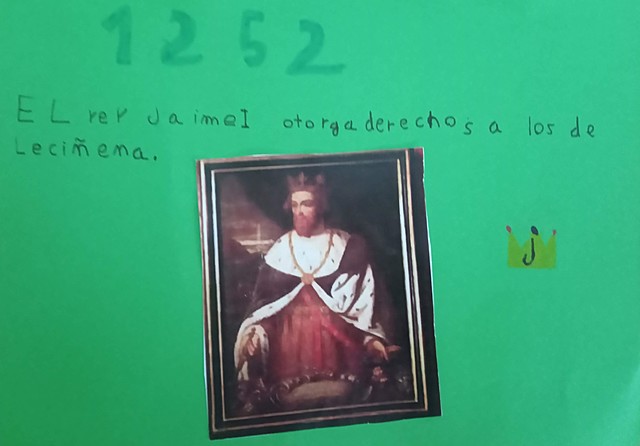 1252
EL rey JaimeI otorga derechos a los de
Leciñena.
J